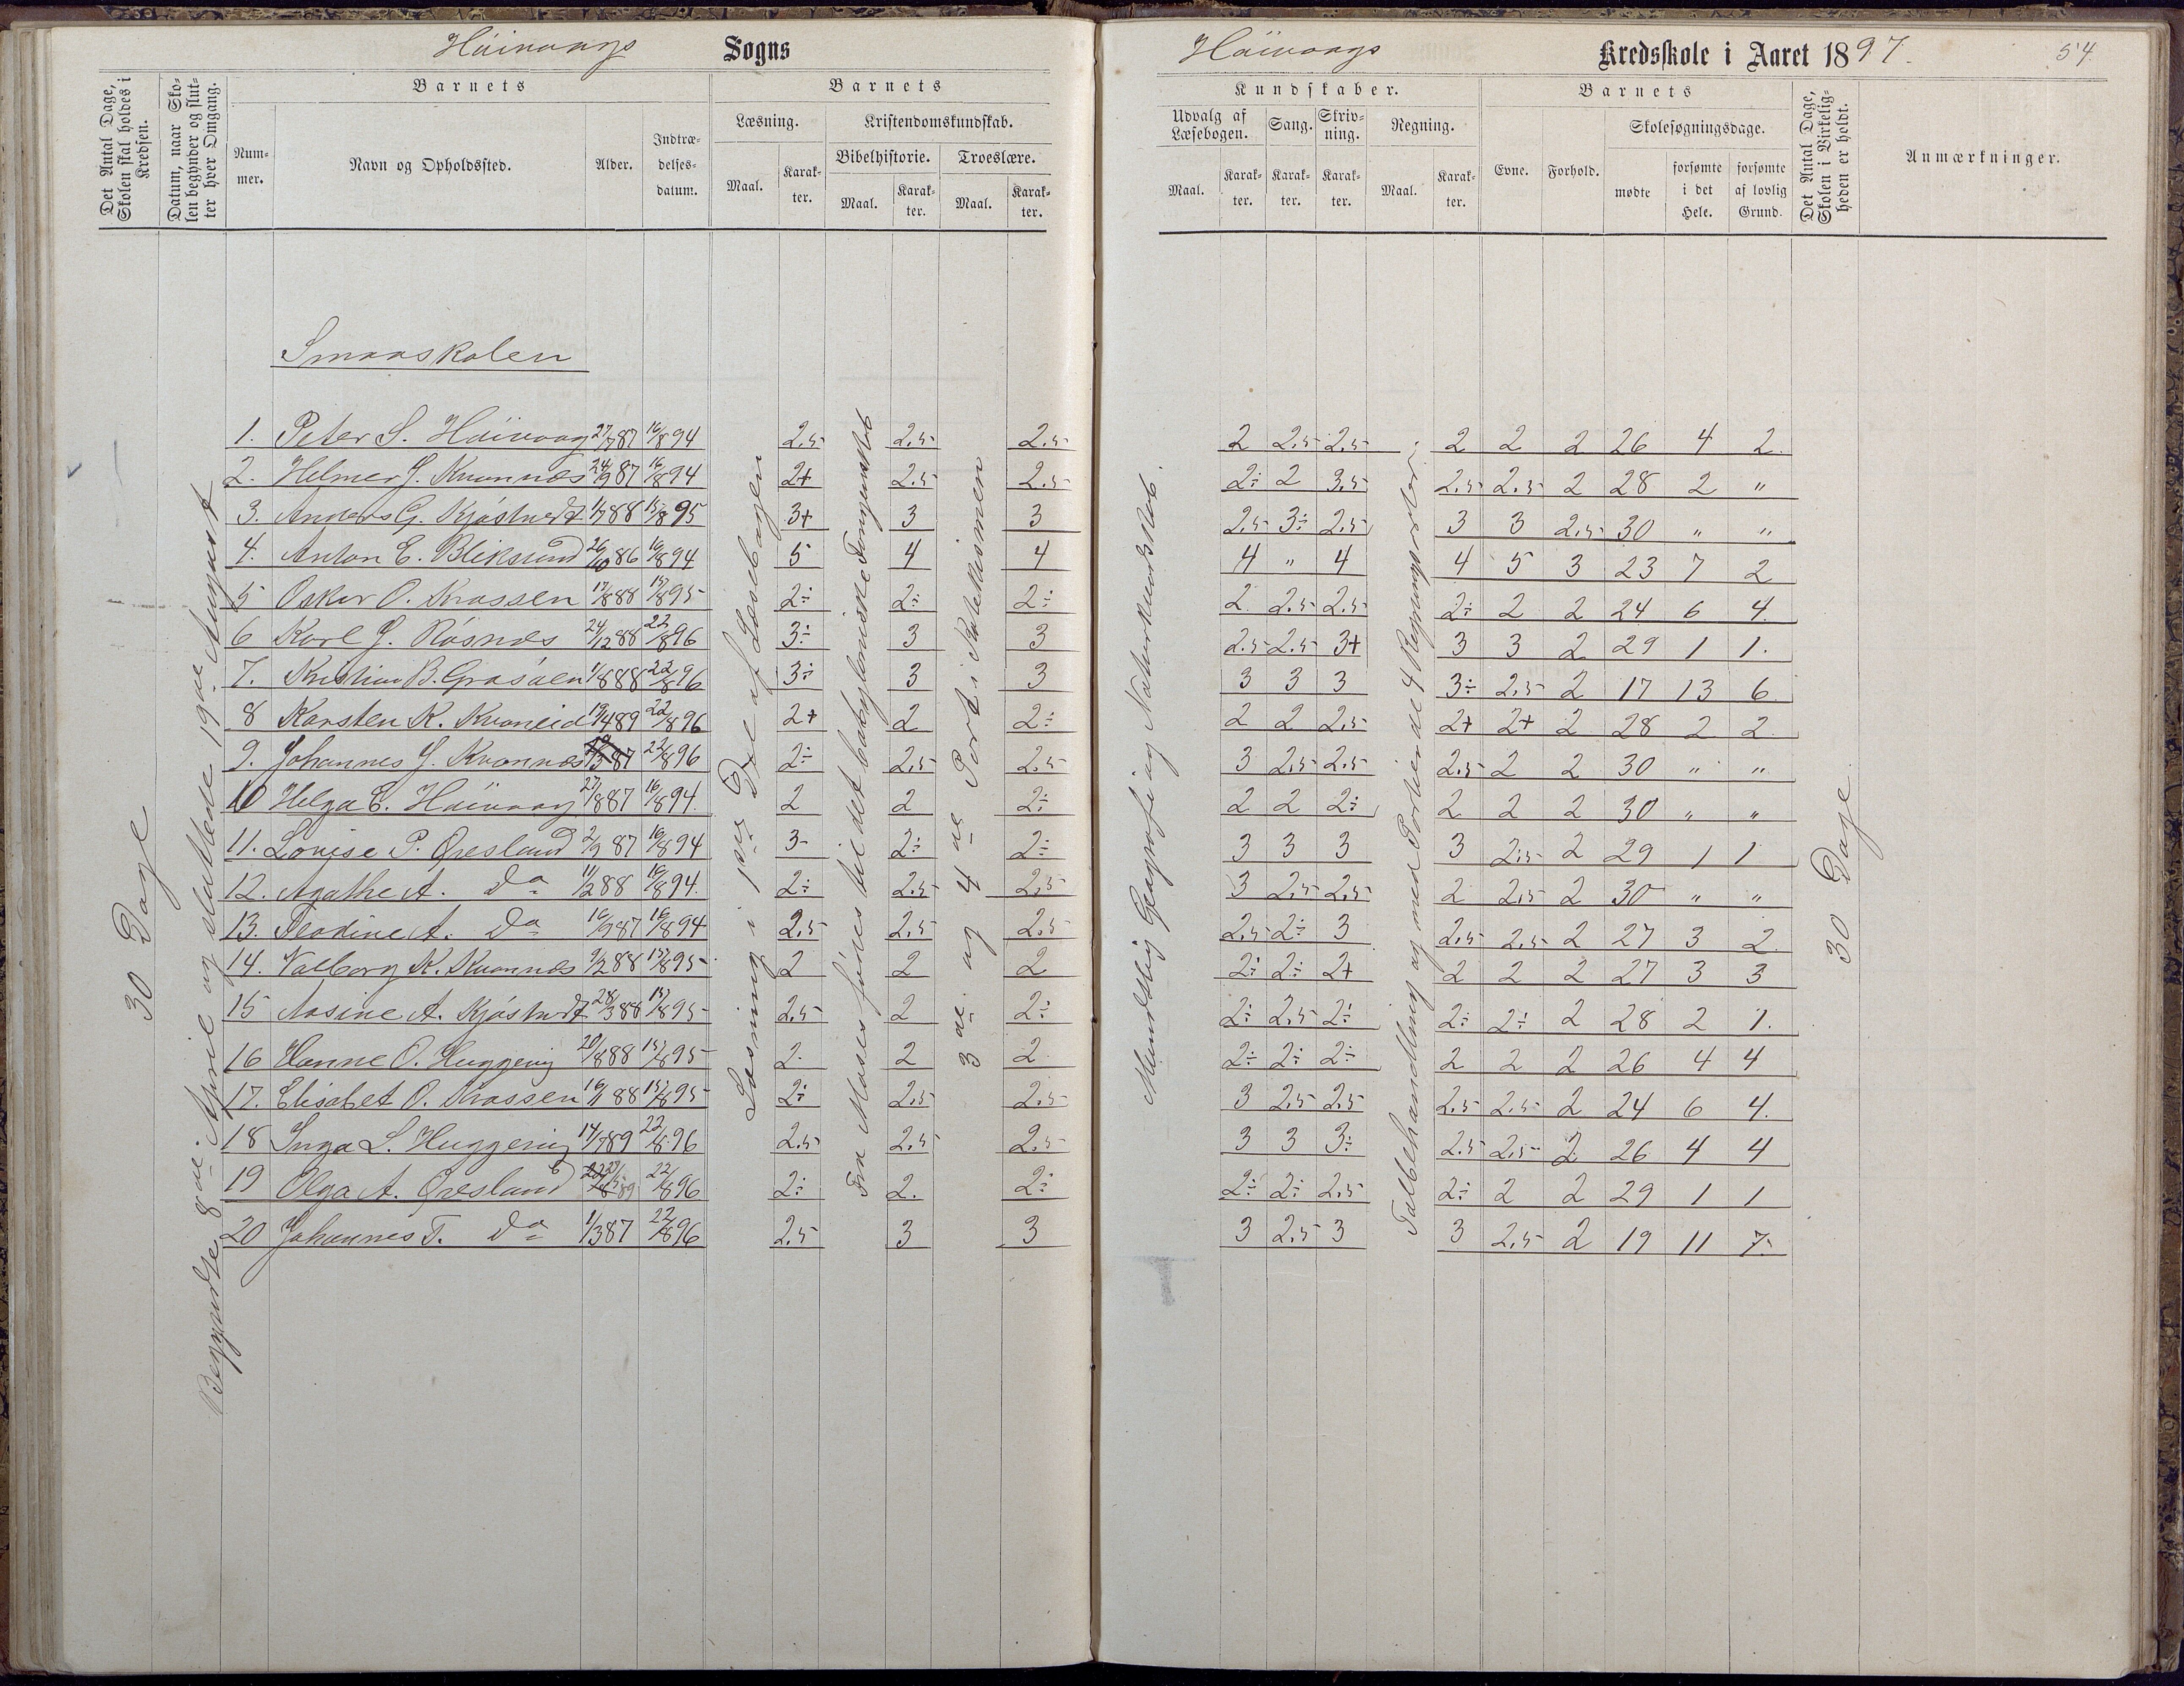 Höivaags Sogns
Höivaags Kredsskole i Aaret 1897. 54.
Det Antal Dage, Skolen skal holdes i Kredsen.
Datum, naar Skolen begynder og slutter hver Omgang.
Barnets
Nummer.
Navn og Opholdssted.
Alder.
Indtrædelsesdatum.
Barnets
Læsning.
Maal.
Karakter.
Kristendomskundskab.
Bibelhistorie.
Maal.
Karakter.
Troeslære.
Maal.
Karakter.
Kundskaber.
Udvalg af Læsebogen.
Maal.
Karakter.
Sang.
Karakter.
Skrivning.
Karakter.
Regning.
Maal.
Karakter.
Barnets
Evne.
Forhold.
Skolesøgningsdage.
mødte
forsømte i det Hele.
forsømte af lovlig Grund.
Det Antal Dage, Skolen i Virkeligheden er holdt.
Anmærkninger.
30 Dage
Begyndte 8de April og sluttede 19de August
Smaaskolen
Læsning i 1ste Del af Læsebogen
Fra Moses födes til det babyloniske Fangenskab
3de og 4de Part i Katekismen
Mundtlig Geografi og Naturkundskab.
Talbehandling og med Portier de 4 Regningsarter.
30 Dage
1. Peter S. Höivaag 27/7 87 16/8 94 2.5 2.5 2.5 2 2.5 2.5 2 2 2 26 4 2.
2. Helmer J. Kvannes 24/9 87 16/8 94 2+ 2.5 2.5 2÷ 2 3.5 2.5 2.5 2 28 2 "
3. Anders G. Kjöstvedt 1/7 88 15/8 95 3+ 3 3 2.5 3÷ 2.5 3 3 2.5 30 " "
4. Anton E. Bliksund 26/10 86 16/8 94 5 4 4 4 " 4 4 5 3 23 7 2
5 Oskar O. Krossen 17/8 88 15/8 95 2÷ 2÷ 2÷ 2. 2.5 2.5 2÷ 2 2 24 6 4.
6 Karl G. Rösnes 24/12 88 22/8 96 3÷ 3 3 2.5 2.5 3+ 3 3 2 29 1 1.
7. Kristian B. Grasåen 1/8 88 22/8 96 3÷ 3 3 3 3 3 3÷ 2.5 2 17 13 6.
8 Karsten K. Kvaneid 19/4 89 22/8 96 2+ 2 2÷ 2 2 2.5 2+ 2+ 2 28 2 2.
9. Johannes J. Kvannes 87 22/8 96 2÷ 2.5 2.5 3 2.5 2.5 2.5 2 2 30 " "
10 Helga E. Höivaag 27/8 87 16/8 94. 2 2 2÷ 2 2 2÷ 2 2 2 30 " "
11. Lovise P. Öresland 2/9 87 16/8 94 3- 2÷ 2÷ 3 3 3 3 2.5 2 29 1 1
12. Agathe A. Do 11/2 88 16/8 94. 2÷ 2.5 2.5 3 2.5 2.5 2 2.5 2 30 " "
13. Teodine A. Do 16/9 87 16/8 94 2.5 2.5 2.5 2.5 2÷ 3 2.5 2.5 2 27 3 2.
14. Valborg K. Kvannes 9/2 88 15/8 95 2 2 2 2÷ 2÷ 2+ 2 2 2 27 3 3
15 Aasine A. Kjöstvedt 28/3 88 15/8 95 2.5 2 2÷ 2÷ 2.5 2÷ 2÷ 2÷ 2 28 2 1.
16 Hanne O. Huggenig 20/8 88 15/8 95 2. 2 2 2÷ 2÷ 2÷ 2 2 2 26 4 4
17. Elisabet O. Krossen 16/1 88 15/8 95 2÷ 2.5 2.5 3 2.5 2.5 2.5 2.5 2 24 6 4.
18 Inga L. Huggenig 14/7 89 22/8 96 2.5 2.5 2.5 3 3 3÷ 2.5 2.5 2 26 4 4
19 Olga A. Öresland 89 22/8 96 2÷ 2. 2÷ 2÷ 2÷ 2.5 2÷ 2 2 29 1 1
20 Johannes T. Do 1/3 87 22/8 96 2.5 3 3 3 2.5 3 3 2.5 2 19 11 7.